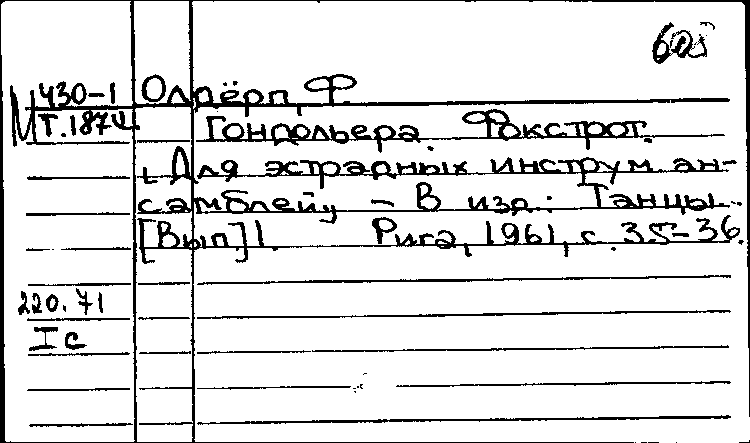 605
М 430-1 Олдёрп, Ф.
Т.1874 Гондольера. Фокстрот.
[Для эстрадных инструм. ан-
самблей]. – В изд.: Танцы.
[Вып.] 1. Рига, 1961, с. 35-36.
220.71
Iс